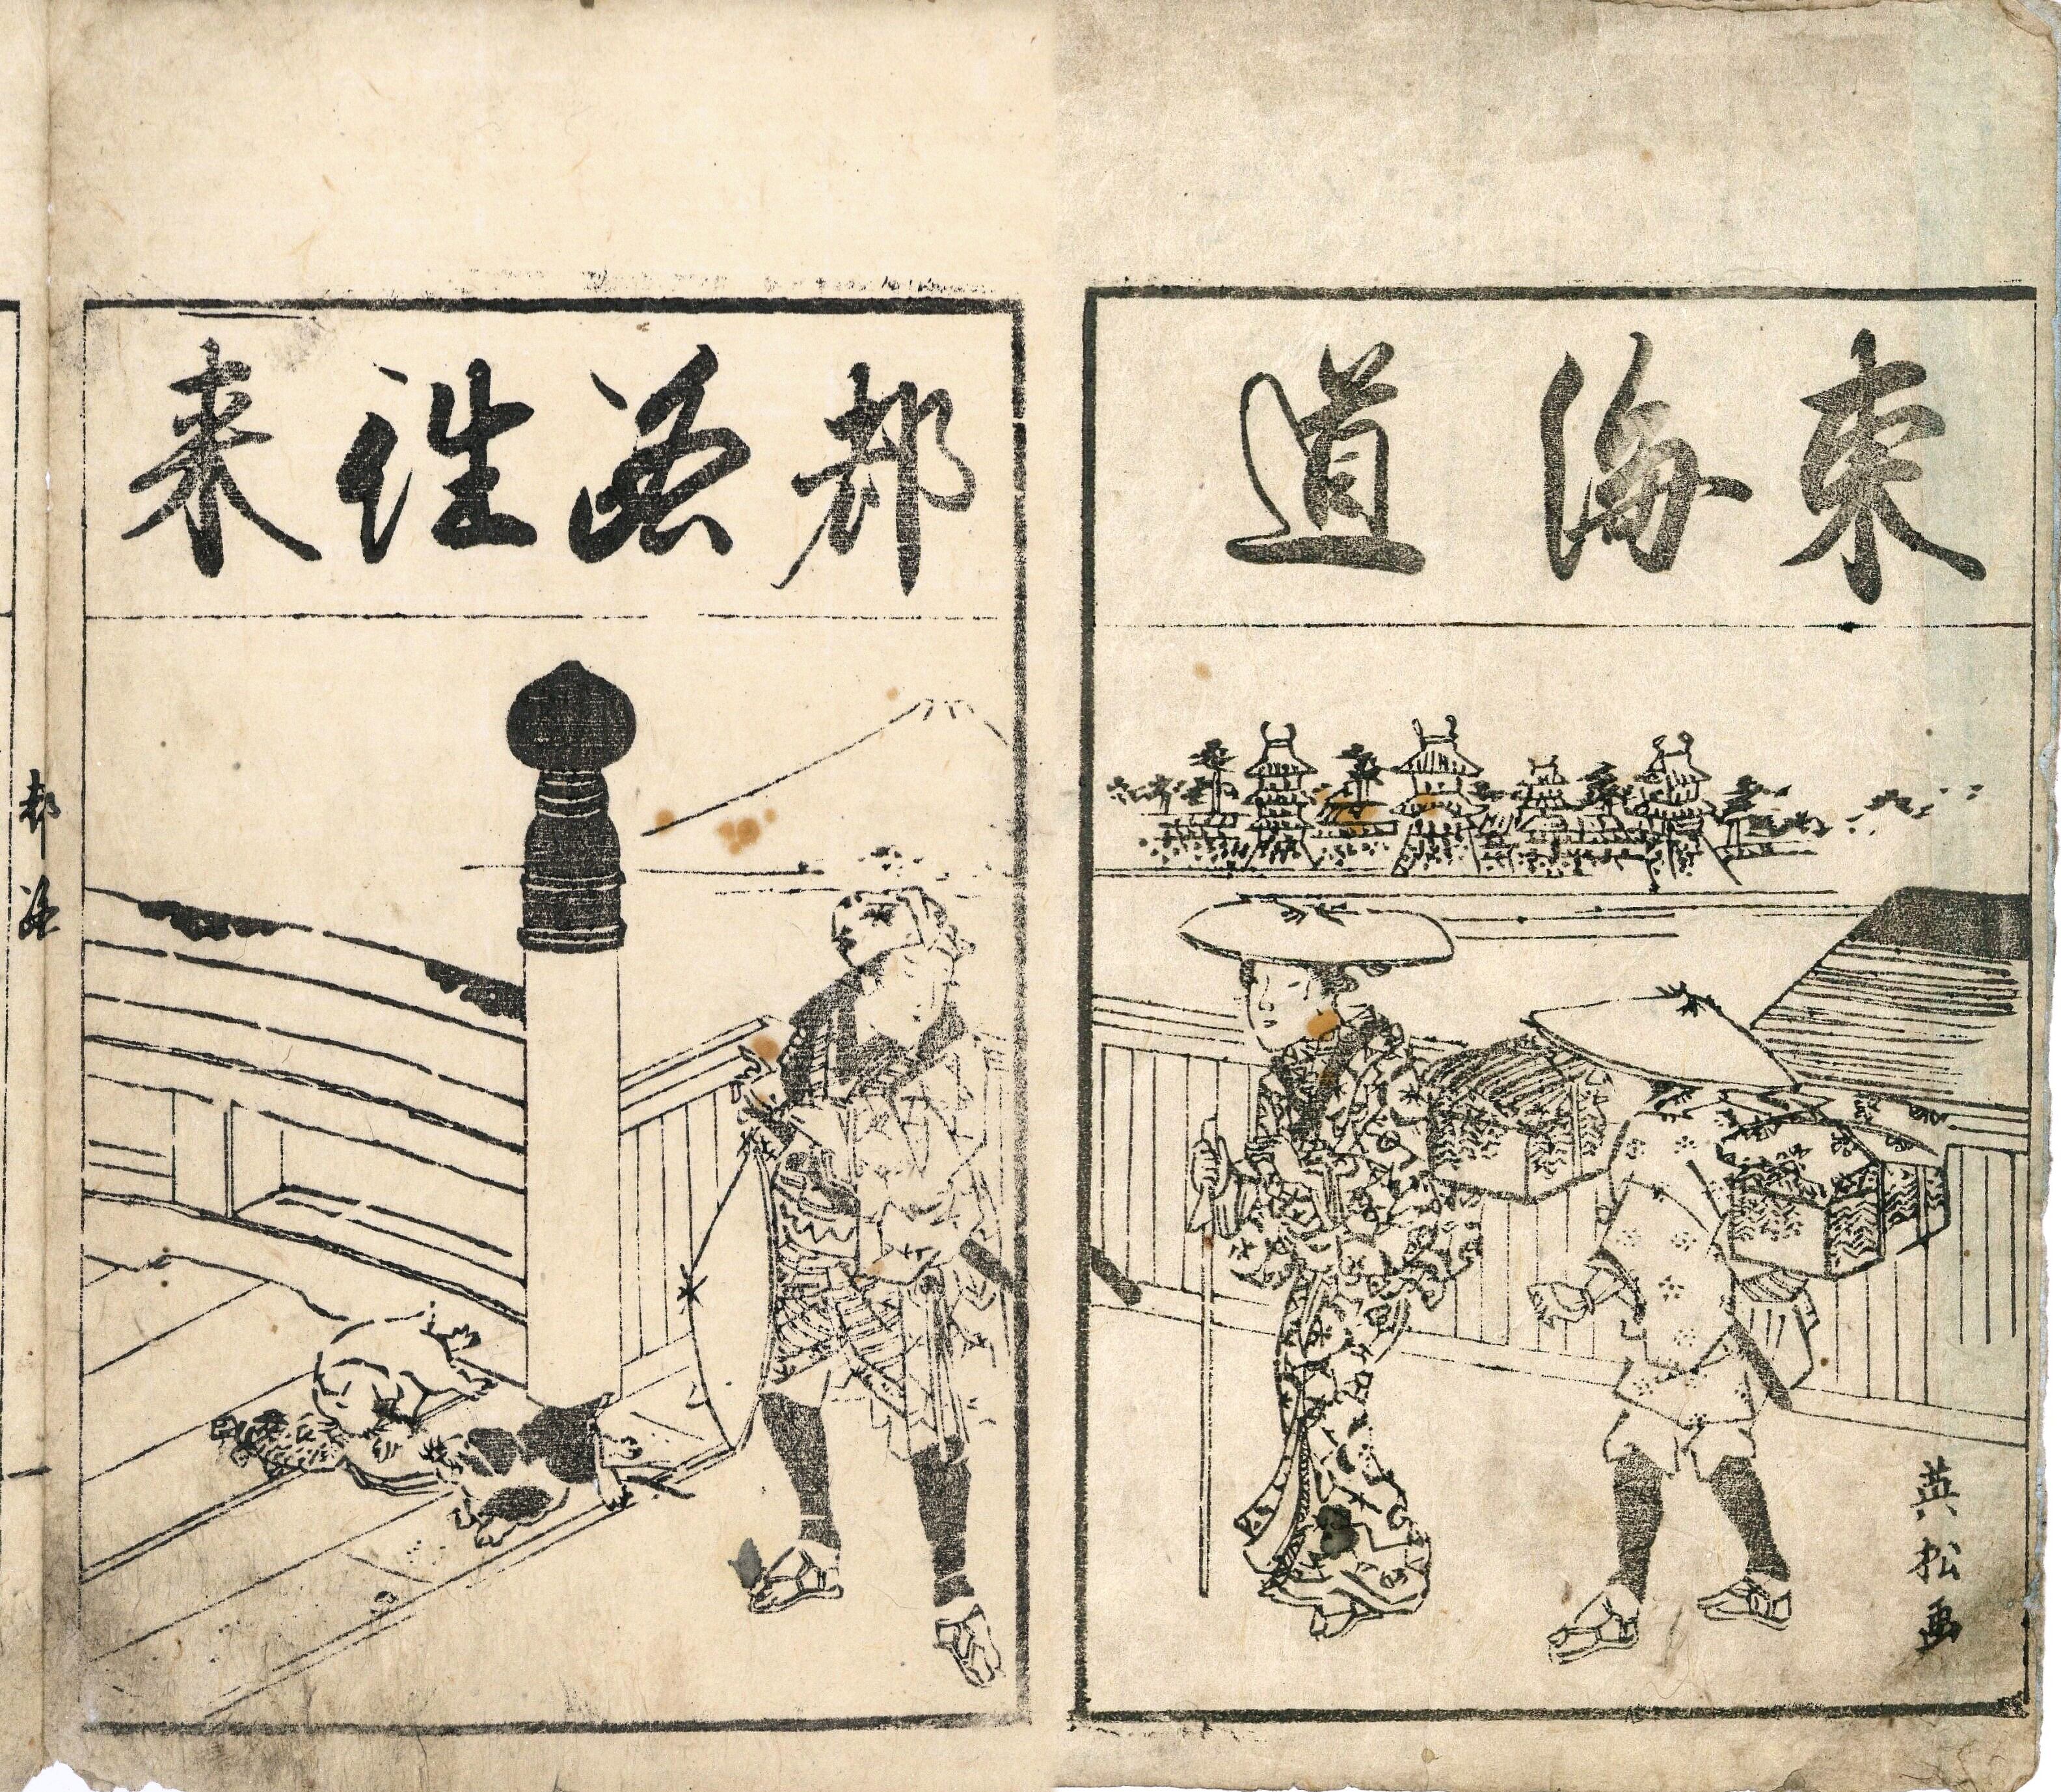 東海道
都路往来
英松画
都路